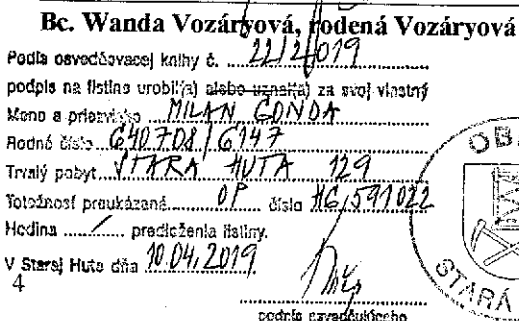 Bc. Wanda Vozáryová, rodená Vozáryová
Podľa osvedčovacej knihy č. 22/2019
podpis na listine urobil(a) alebo uznal(a) za svoj vlastný
Meno a priezvisko MILAN GONDA
Rodné číslo 640708/6147
Trvalý pobyt STARA HUTA 129
Totožnosť preukázaná OP číslo HG 591022
Hodina ........ predloženia listiny.
V Starej Hute dňa 10.04.2019
4
podpis osvedčujúceho
OB
STARÁ